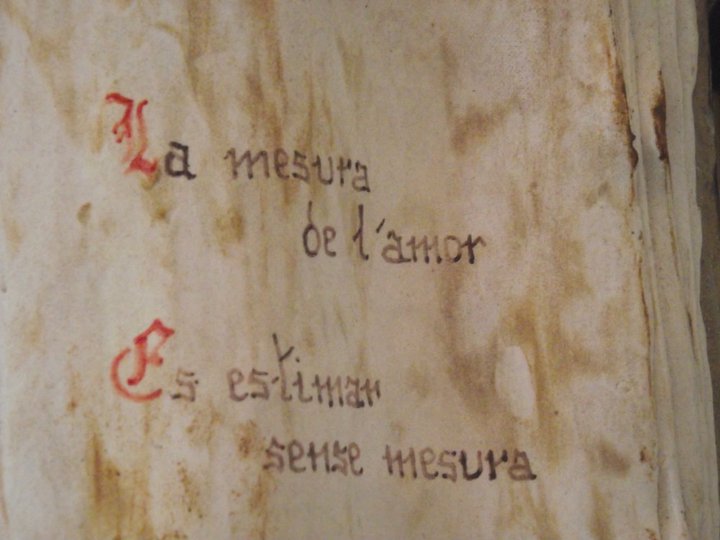 La mesura
de l'amor
Es estimar
sense mesura